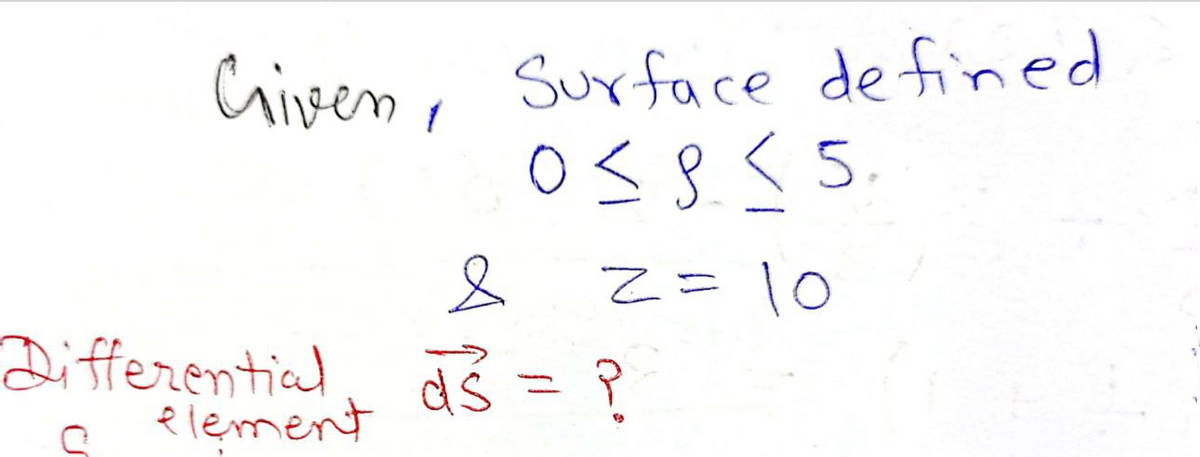 Given, Surface defined
0 ≤ ρ ≤ 5.
& z = 10
Differential
element
d⃗s = ?